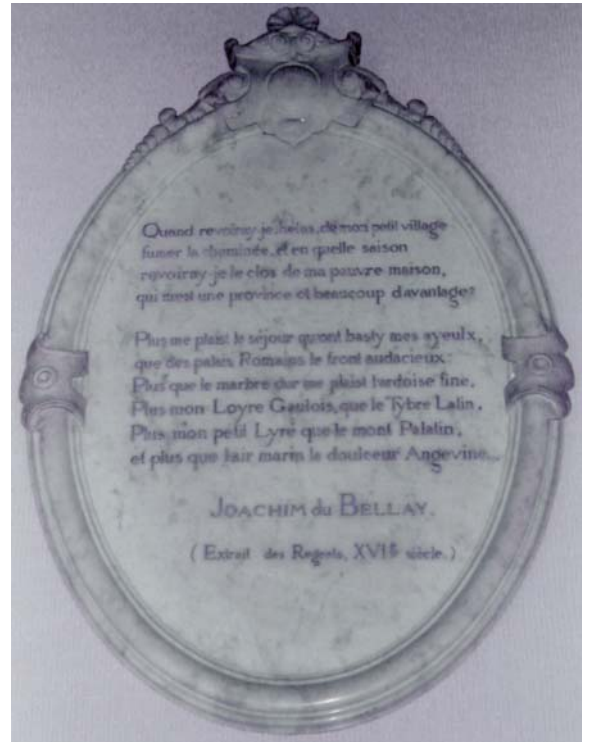 Quand revoiray-je, helas, de mon petit village
fumer la cheminée, et en quelle saison
revoiray-je le clos de ma pauvre maison,
qui m'est une province et beaucoup d'avantage?
Plus me plaist le séjour qu'ont basty mes ayeulx,
que des palais Romains le front audacieux:
Plus que le marbre dur me plaist l'ardoise fine,
Plus mon Loyre Gaulois, que le Tybre Latin,
Plus mon petit Lyré que le mont Palatin,
et plus que l'air marin le doulceur Angevine...
JOACHIM du BELLAY.
( Extrait des Regrets, XVIe siècle. )